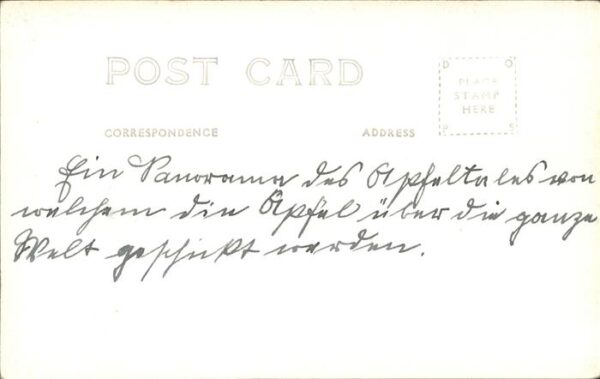 POST CARD
D O
PLACE
STAMP
HERE
P S
CORRESPONDENCE ADDRESS
Ein Panorama des Apfeltales von
welchem die Äpfel über die ganze
Welt geschickt werden.